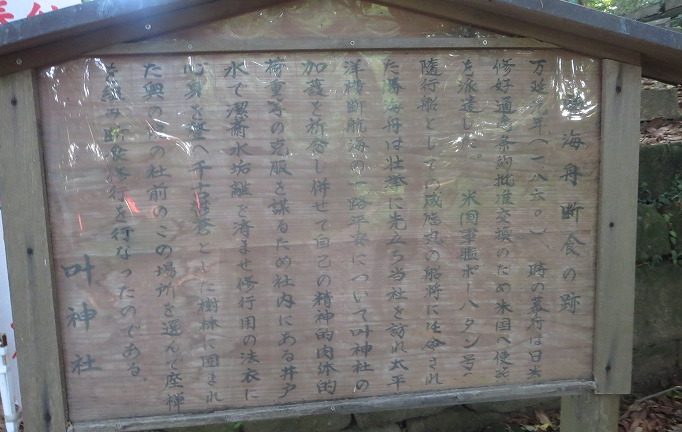 勝海舟断食の跡
万延元年(一八六〇)、時の幕府は日米
修好通商条約批准交換のため米国へ使節
を派遣した。 米国軍艦ポーハタン号の
随行船としての咸臨丸の船将に任命され
た勝海舟は壮挙に先立ち当社を訪れ太平
洋横断航海の一路平安について叶神社の
加護を祈念し併せて自己の精神的肉体的
荷重等の克服を謀るため社内にある井戸
水で潔斎水垢離を済ませ修行用の法衣に
心身を整へ千古蒼蒼とした樹林に囲まれ
た奥の院の社前のこの場所を選んで座禅
を組み断食修行を行なったのである。
叶神社